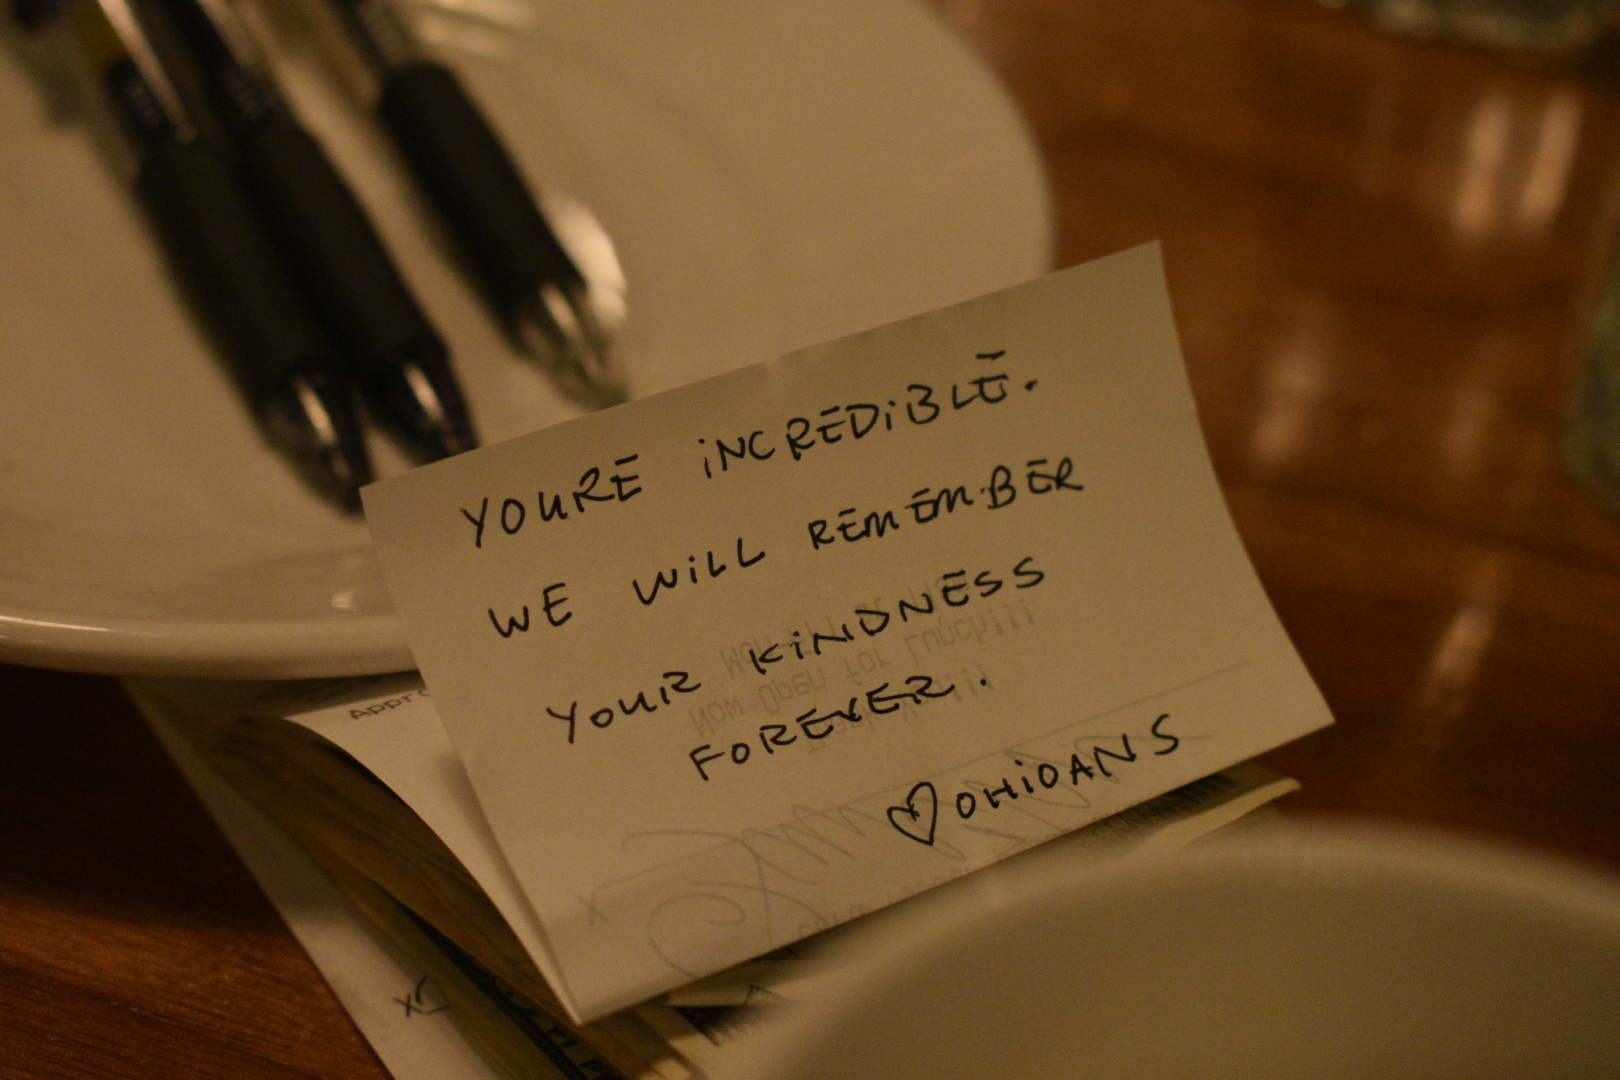 YOURE INCREDIBLE.
WE WILL REMEMBER
YOUR KINDNESS
FOREVER.
♡ OHIOANS
Now Open for Lunch!!!
X
Appro
X